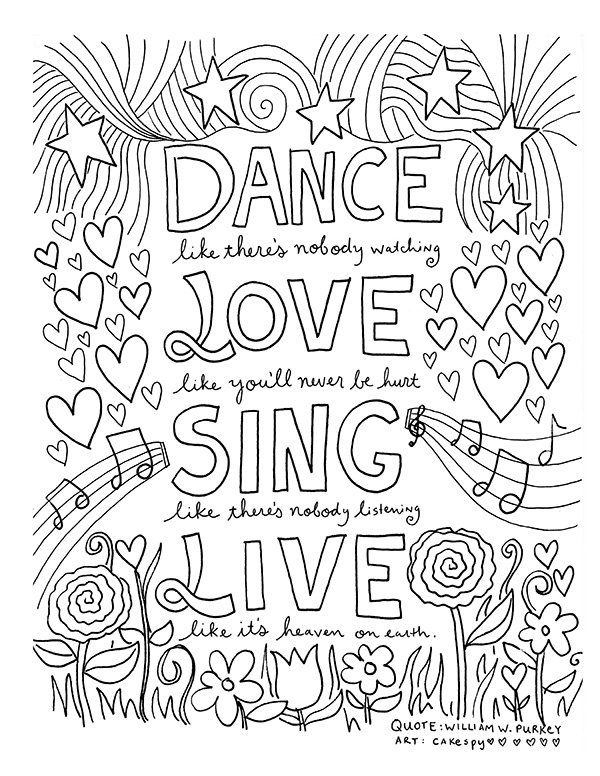 DANCE
like there's nobody watching
LOVE
like you'll never be hurt
SING
like there's nobody listening
LIVE
like it's heaven on earth.
QUOTE: WILLIAM W. PURKEY
ART: CAKESPY♡♡♡♡♡♡